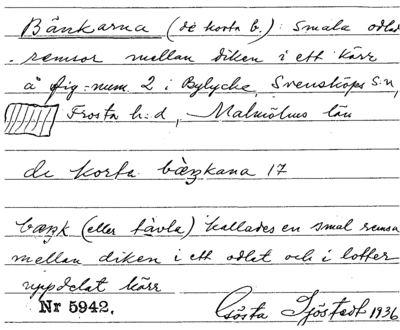 Bänkarna (de korta b.): smala odl.
remsor mellan diken i ett kärr
å fig.-num. 2 i Bylycke, Svensköps s:n,
Frosta h:d, Malmöhus län
de korta bæ̀ŋkana 17
bæŋk (eller tàvla) kallades en smal remsa
mellan diken i ett odlat och i lotter
uppdelat kärr
Nr 5942. Gösta Sjöstedt 1936